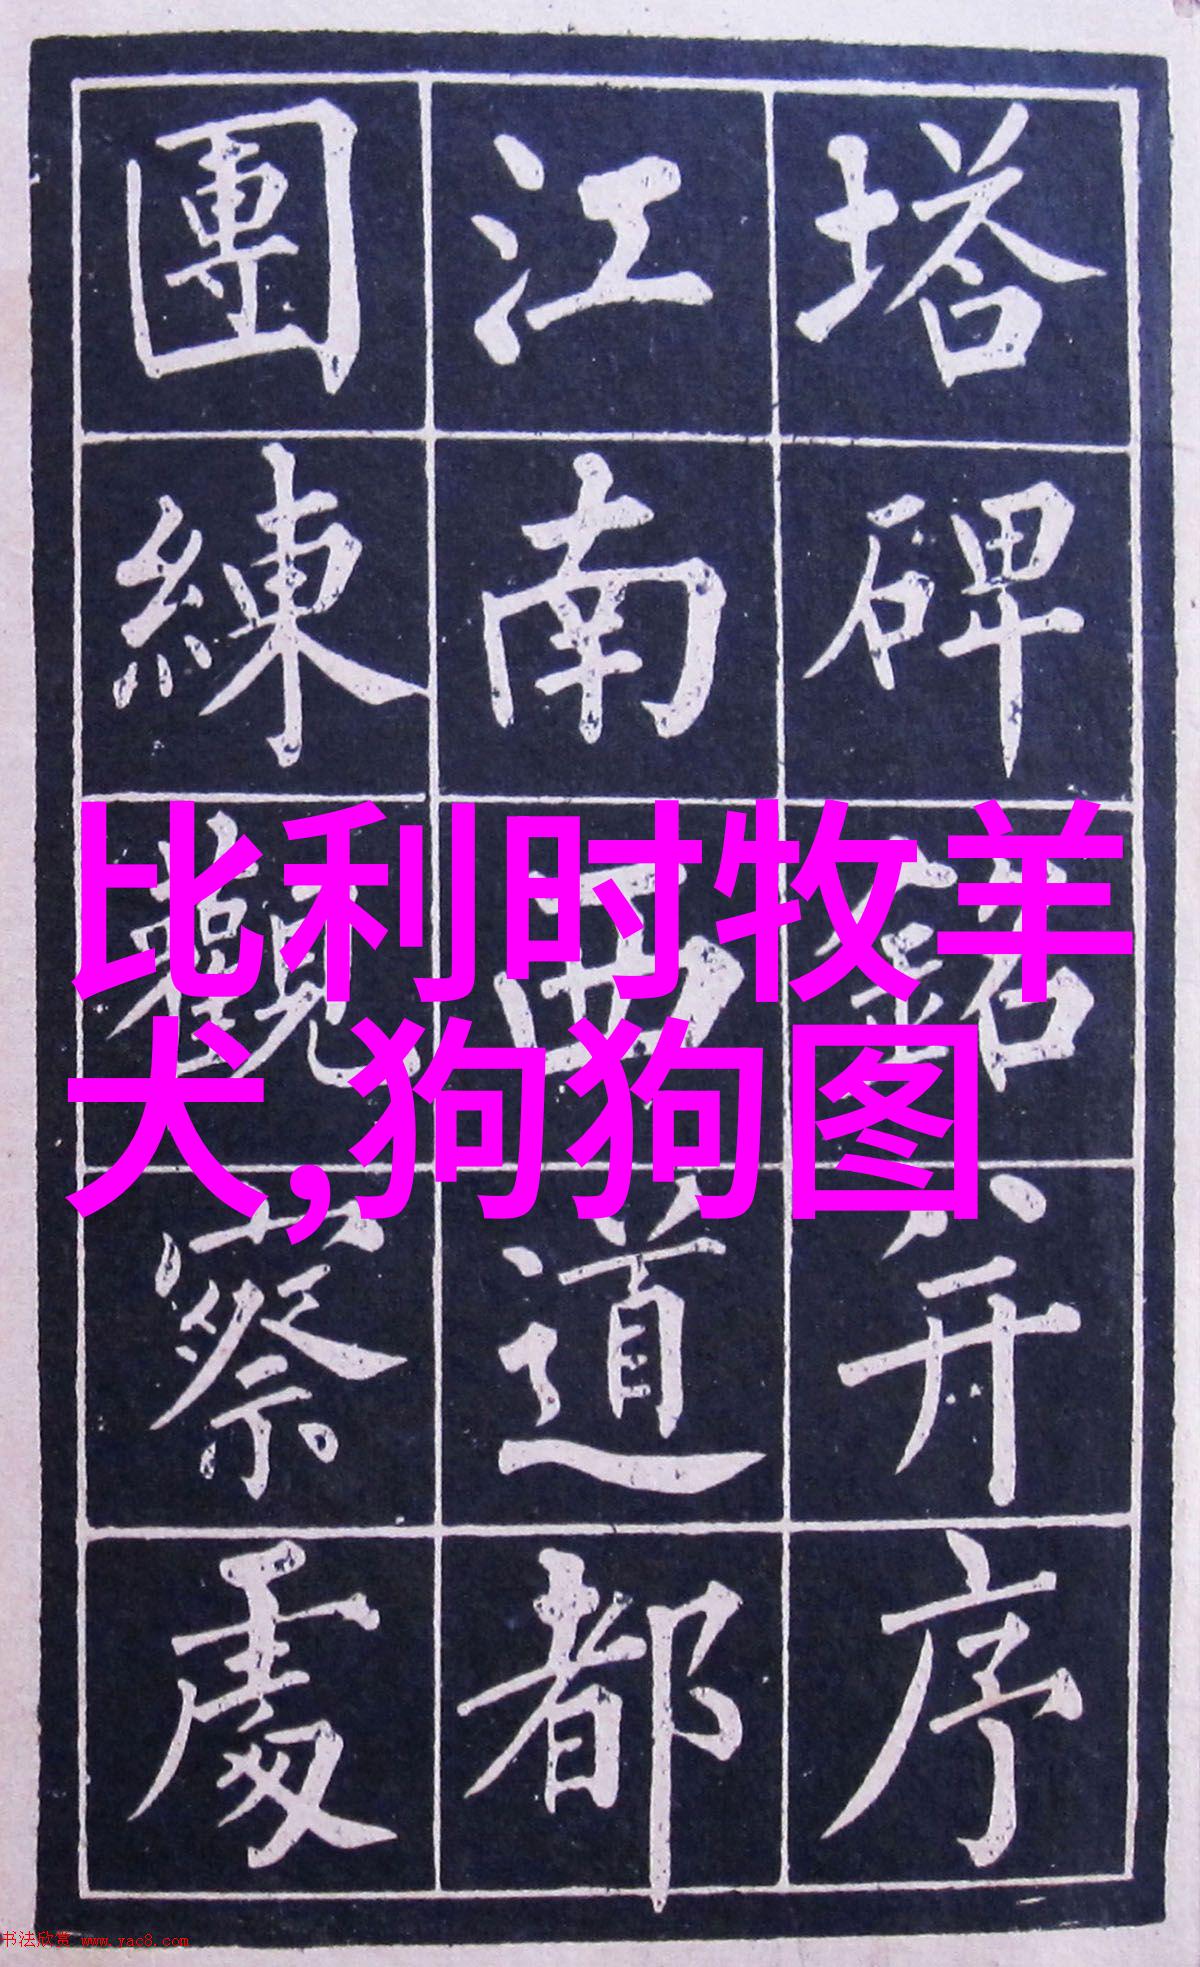 塔碑銘并序
江南西道都
團練觀察處
比利时牧羊
犬,狗狗图
书法欣赏 www.yac8.com